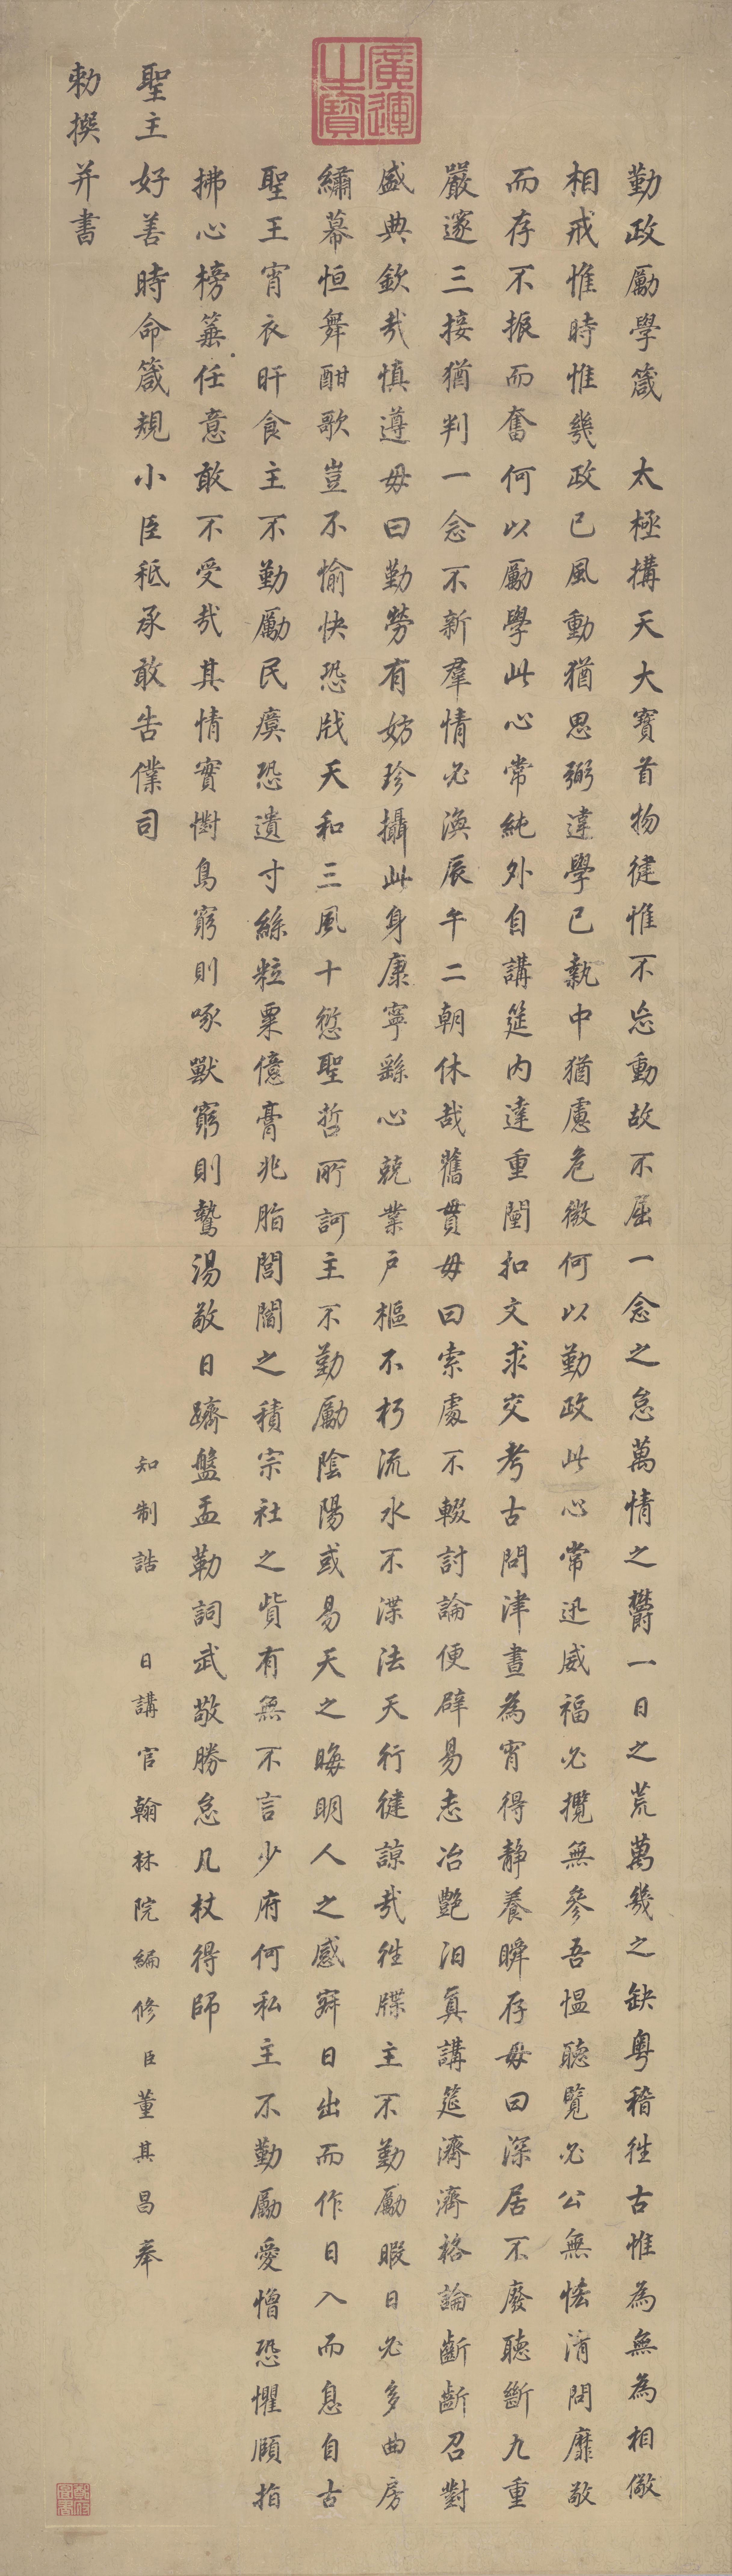 勤政勵學箴　太極搆天大寶首物健惟不㤀動故不屈一念之怠萬情之欝一日之荒萬幾之缺粵稽往古惟為無為相儆
相戒惟時惟幾政已風動猶思弼違學已執中猶慮危微何以勤政此心常迅威福必攬無參吾愠聽覽必公無恡清問靡敬
而存不振而奮何以勵學此心常純外自講筵內達重闉扣文求交考古問津晝為宵得靜養瞬存毋曰深居不廢聽斷九重
嚴邃三接猶判一念不新羣情必渙辰午二朝休哉舊貫毋曰索處不輟討論便辟易志冶艷汩真講筵濟濟格論齗齗召對
盛典欽哉慎遵毋曰勤勞有妨珍攝此身康寧繇心兢業戶樞不朽流水不渫法天行健諒哉往牒主不勤勵暇日必多曲房
繡幕恒舞酣歌豈不愉快恐戕天和三風十愆聖哲所訶主不勤勵陰陽或易天之晦明人之感寐日出而作日入而息自古
聖王宵衣旰食主不勤勵民瘼恐遺寸絲粒粟億膏兆脂閭閻之積宗社之貲有無不言少府何私主不勤勵愛憎恐懼頤指
拂心榜箠任意敢不受哉其情實懟鳥窮則啄獸窮則鷙湯敬日躋盤盂勒詞武敬勝怠几杖得師
聖主好善時命箴規小臣秪承敢告僕司　知制誥　日講官翰林院編修臣董其昌奉
勅撰并書
廣運之寶